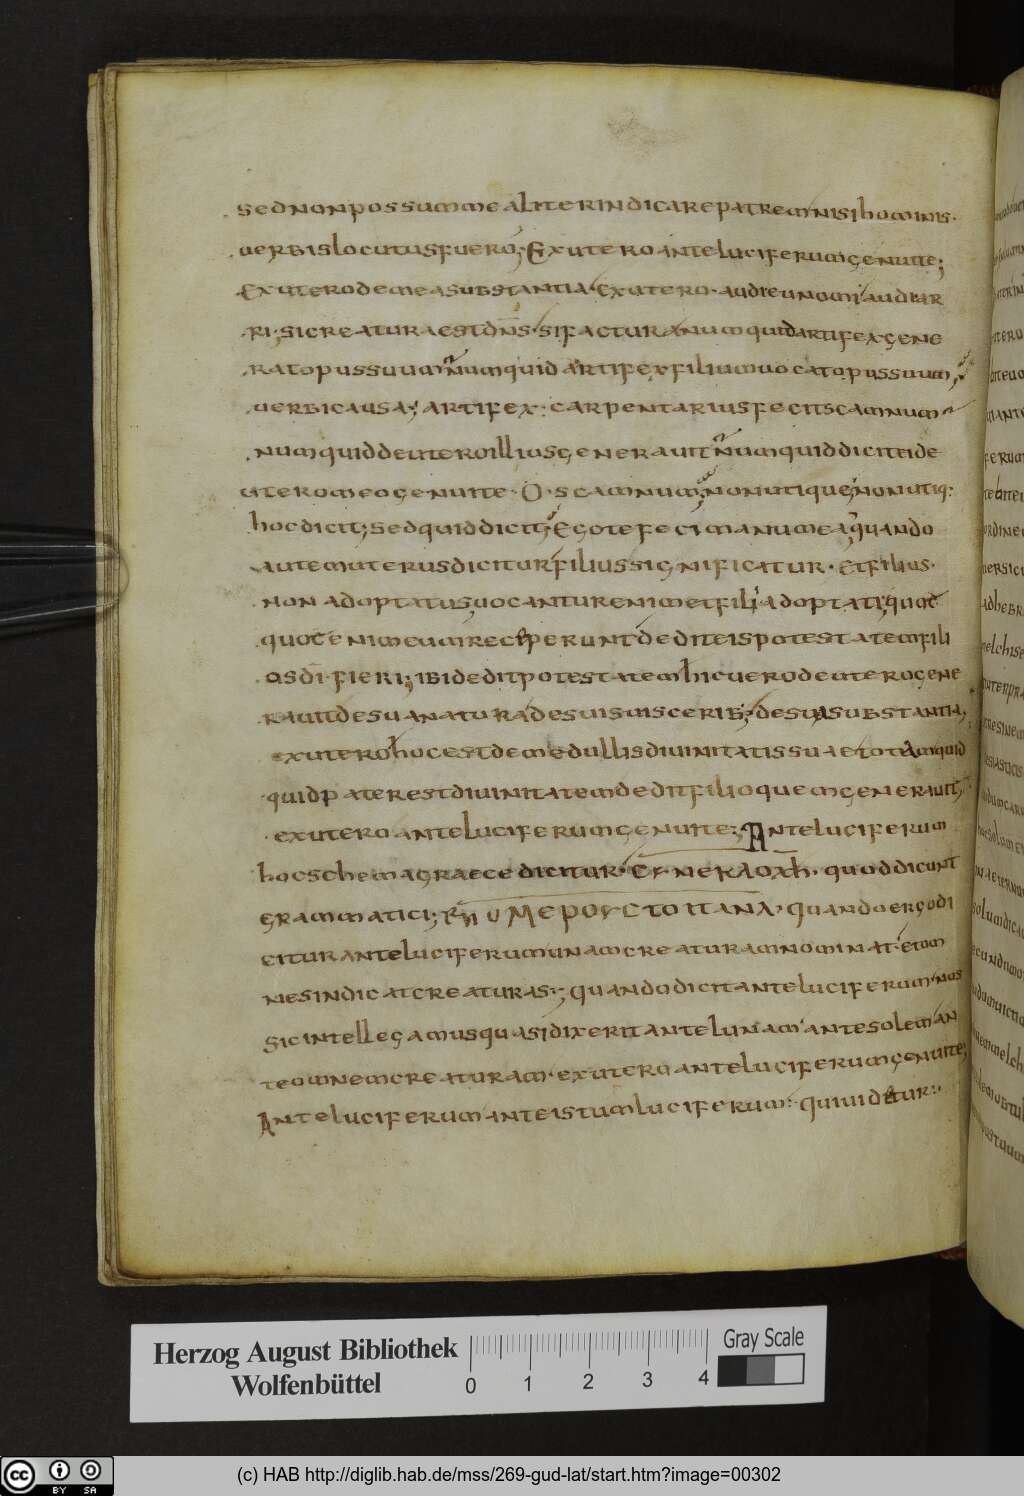 sed non possum me aliter indicare patrem nisi hominis.
uerbis locutus fuero; Ex utero ante luciferum genui te;
Ex utero de mea substantia. Ex utero. audi eunomi audi ar
ri. si creatura est dns. si factura numquid artifex gene
rat opus suum numquid artifex filium uocat opus suum,
uerbi causa; artifex. carpentarius fecit scamnum
numquid de utero illius generauit numquid dicit ei de
utero meo genui te. O scamnum, non utique, non utiq:
hoc dicit; sed quid dicit; Ego te feci manu mea, quando
autem uterus dicitur filius significatur. et filius.
non adoptatus uocantur enim et filii adoptati, quot
quot enim eum receperunt dedit eis potestatem fili
os di fieri; ibi dedit potestatem hic uero de utero gene
rauit de sua natura de suis uisceribus; de sua substantia,
ex utero hoc est de medullis diuinitatis suae totam quid
quid pater est diuinitatem dedit filio quem generauit;
ex utero ante luciferum genui te; Ante luciferum
hoc schema graece dicitur. CΥΝΕΚΔΟΧΗ. quod dicunt
grammatici; ΜΕΡΟΥC ΤΟ ΠΑΝ. Quando ergo di
citur ante luciferum unam creaturam nominat. et om
nes indicat creaturas; quando dicit ante luciferum. nos
sic intellegamus quasi dixerit ante lunam. ante solem. an
te omnem creaturam. ex utero ante luciferum genui te;
Ante luciferum ante istum luciferum. qui uidetur.
Herzog August Bibliothek
Wolfenbüttel
0 1 2 3 4
Gray Scale
cc BY SA
(c) HAB http://diglib.hab.de/mss/269-gud-lat/start.htm?image=00302